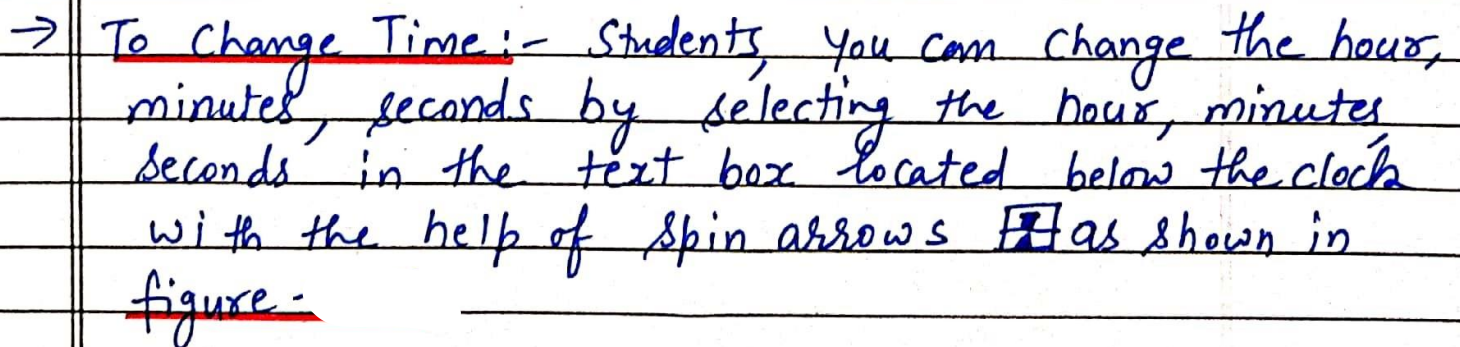 → To Change Time:- Students, you can change the hour,
minutes, seconds by selecting the hour, minutes,
seconds in the text box located below the clock
with the help of spin arrows as shown in
figure-